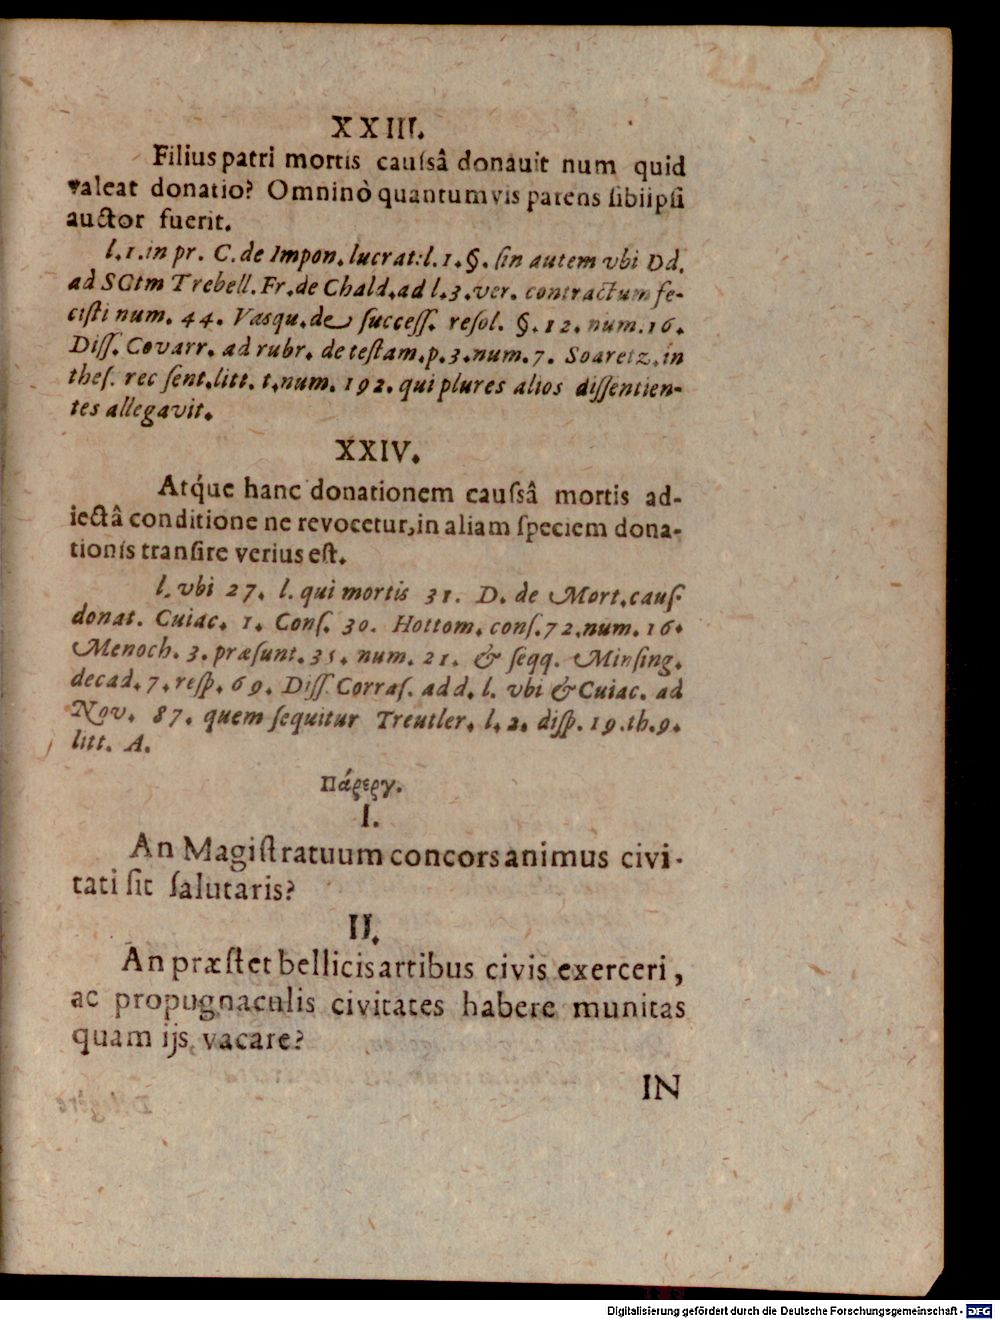 XXIII.
Filius patri mortis caussâ donauit num quid
valeat donatio? Omninò quantumvis parens sibiipsi
auctor fuerit.
l.1.in pr. C. de Impon. lucrat:l.1.§. sin autem vbi Dd.
ad SCtm Trebell. Fr. de Chald. ad l.3. ver. contractum fe-
cisti num. 44. Vasqu. de success. resol. §. 12. num. 16.
Diss. Covarr. ad rubr. de testam. p. 3. num. 7. Soaretz. in
thes. rec sent. litt. t. num. 192. qui plures alios dissentien-
tes allegavit.
XXIV.
Atq́ue hanc donationem caussâ mortis ad-
iectâ conditione ne revocetur, in aliam speciem dona-
tionis transire verius est.
l. vbi 27. l. qui mortis 31. D. de Mort. caus
donat. Cuiac. 1. Cons. 30. Hottom. cons. 72. num. 16.
Menoch. 3. præsunt. 35. num. 21. & seqq. Minsing.
decad. 7. resp. 69. Diss. Corras. ad d. l. vbi & Cuiac. ad
Nov. 87. quem sequitur Treutler. l. 2. disp. 19. th. 9.
litt. A.
Πάρεργ.
I.
An Magistratuum concors animus civi-
tati sit salutaris?
II.
An præstet bellicis artibus civis exerceri,
ac propugnaculis civitates habere munitas
quam ijs vacare?
IN
Digitalisierung gefördert durch die Deutsche Forschungsgemeinschaft - DFG